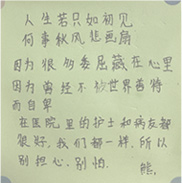 人生若只如初见
何事秋风悲画扇
因为很多委屈藏在心里
因为曾经不被世界善待
而自卑
在医院里的护士和病友都
很好,我们都一样,所以
别担心,别怕.
熊.